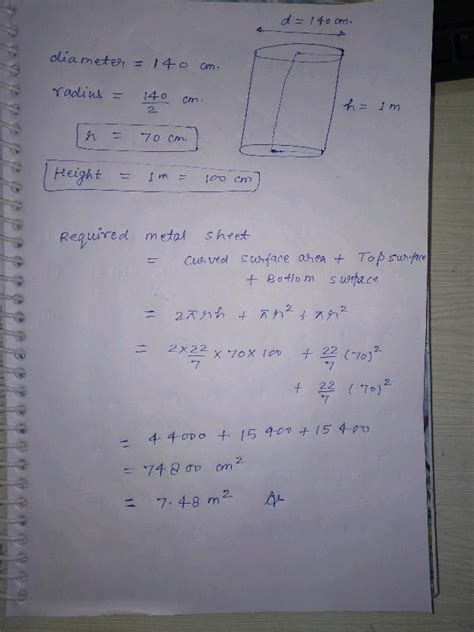 d = 140 cm.
diameter = 140 cm.
radius = 140/2 cm.
h = 1m
r = 70 cm
Height = 1m = 100 cm
Required metal sheet
= Curved surface area + Top surface
+ Bottom surface
= 2πrh + πr² + πr²
= 2×22/7 × 70 × 100 + 22/7 (70)²
+ 22/7 (70)²
= 44000 + 15400 + 15400
= 74800 cm²
= 7.48 m²